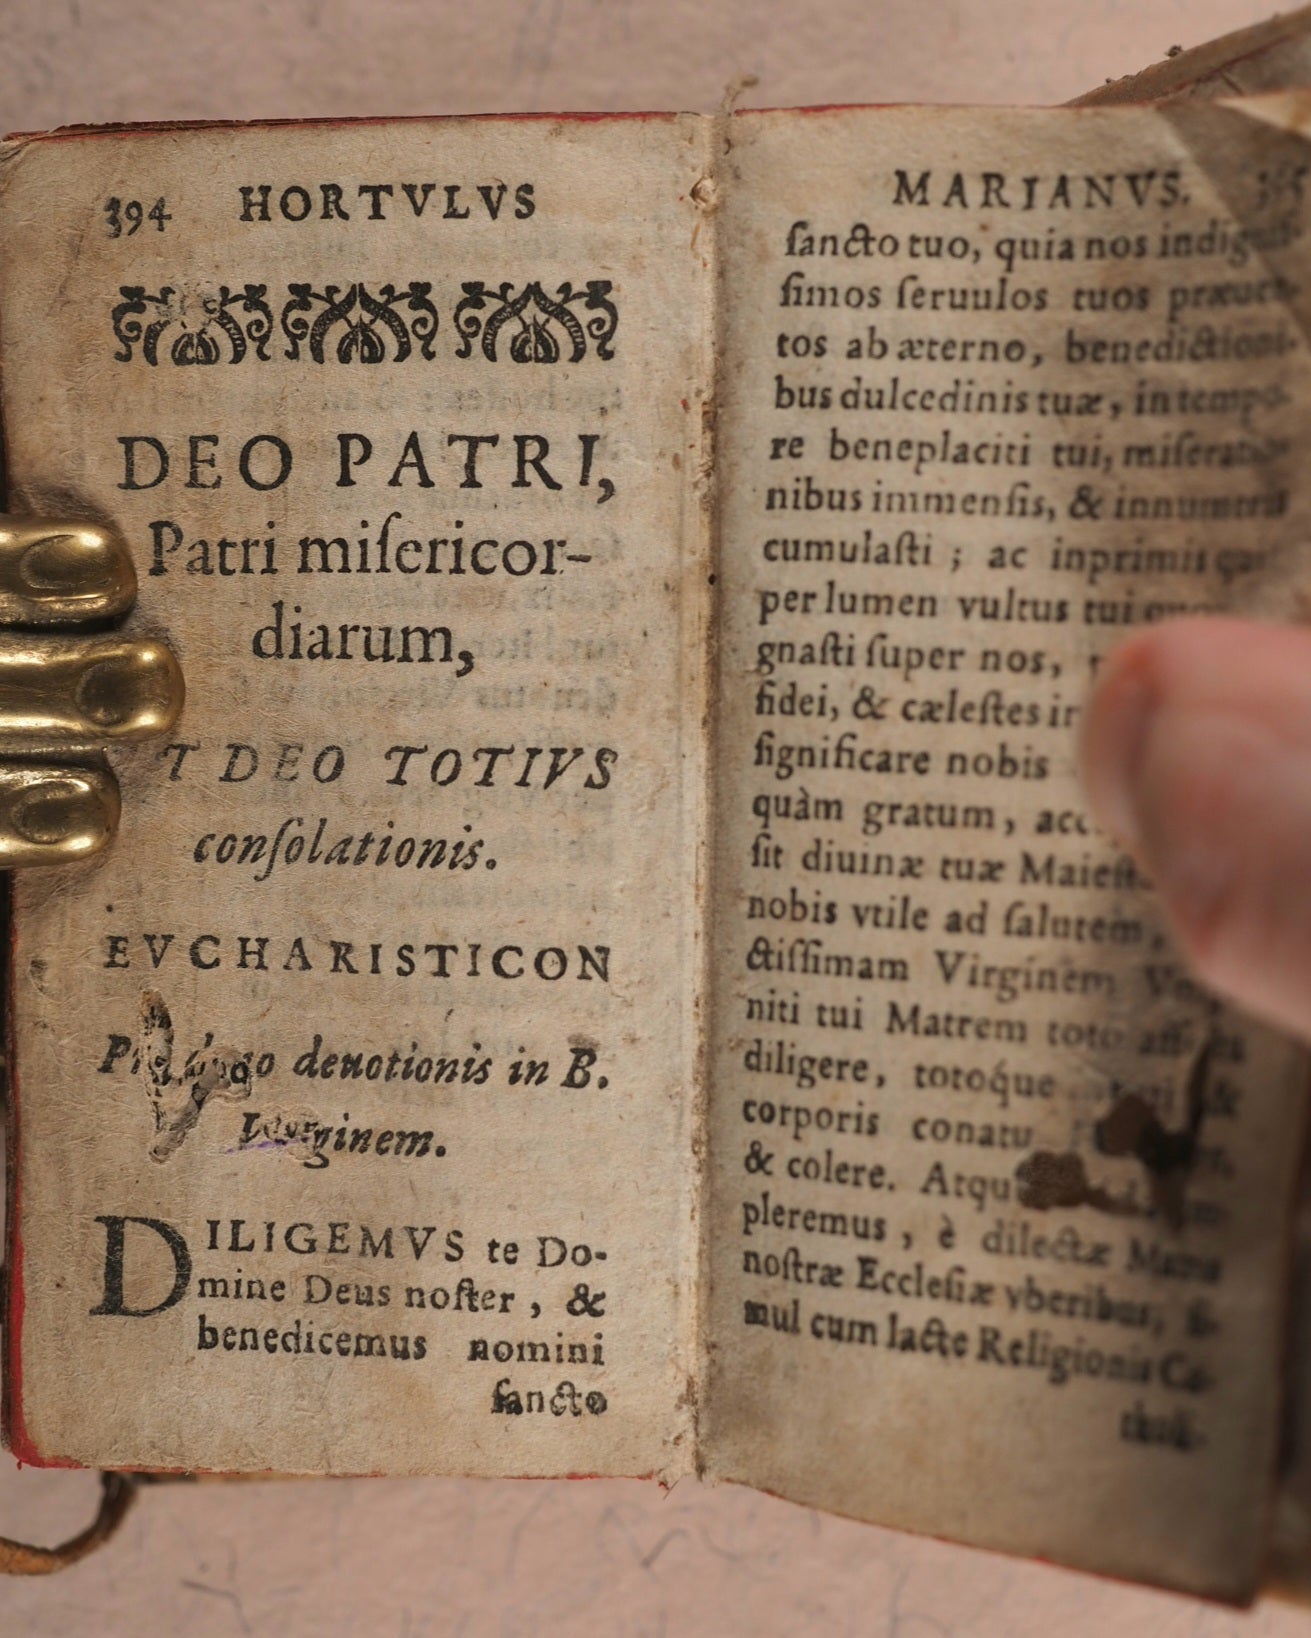 394 HORTVLVS
DEO PATRI,
Patri miſericor-
diarum,
T DEO TOTIVS
conſolationis.
EVCHARISTICON
deuotionis in B.
Virginem.
DILIGEMVS te Do-
mine Deus noſter, &
benedicemus nomini
ſancto
MARIANVS.
ſancto tuo, quia nos
ſimos ſeruulos tuos
tos ab æterno, benedictioni-
bus dulcedinis tuæ, in tempo-
re beneplaciti tui, miſeratio-
nibus immenſis, & innumeris
cumulaſti; ac inprimis
per lumen vultus tui
gnaſti ſuper nos,
fidei, & cæleſtes
ſignificare nobis
quàm gratum,
ſit diuinæ tuæ
nobis vtile ad ſalutem,
ctiſſimam Virginem
niti tui Matrem toto
diligere, totóque &
corporis conatu
& colere.
pleremus, è dilectæ
noſtræ Eccleſiæ vberibus,
mul cum lacte Religionis Ca-